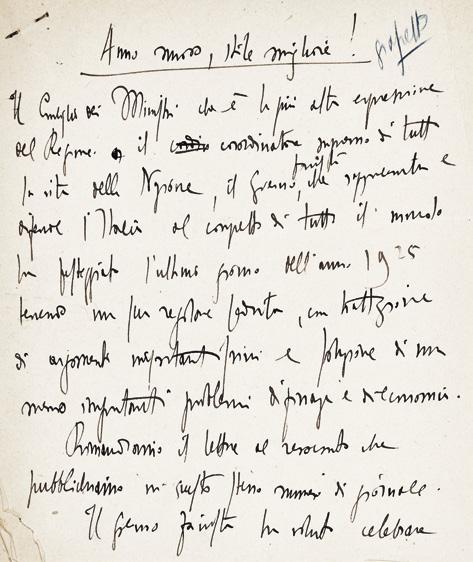 Anno nuovo, stile migliore!
Il Consiglio dei Ministri che è la più alta espressione
del Regime. e il coordinatore supremo di tutta
la vita della Nazione, il Governo fascista che rappresenta e
difende l'Italia al cospetto di tutto il mondo
ha festeggiato l'ultimo giorno dell'anno 1925
tenendo una sua regolare seduta, con trattazione
di argomenti importantissimi e soluzione di non
meno importanti problemi di finanza e di economia.
Rimandiamo il lettore al resoconto che
pubblichiamo in questo stesso numero di giornale.
Il Governo fascista ha voluto celebrare